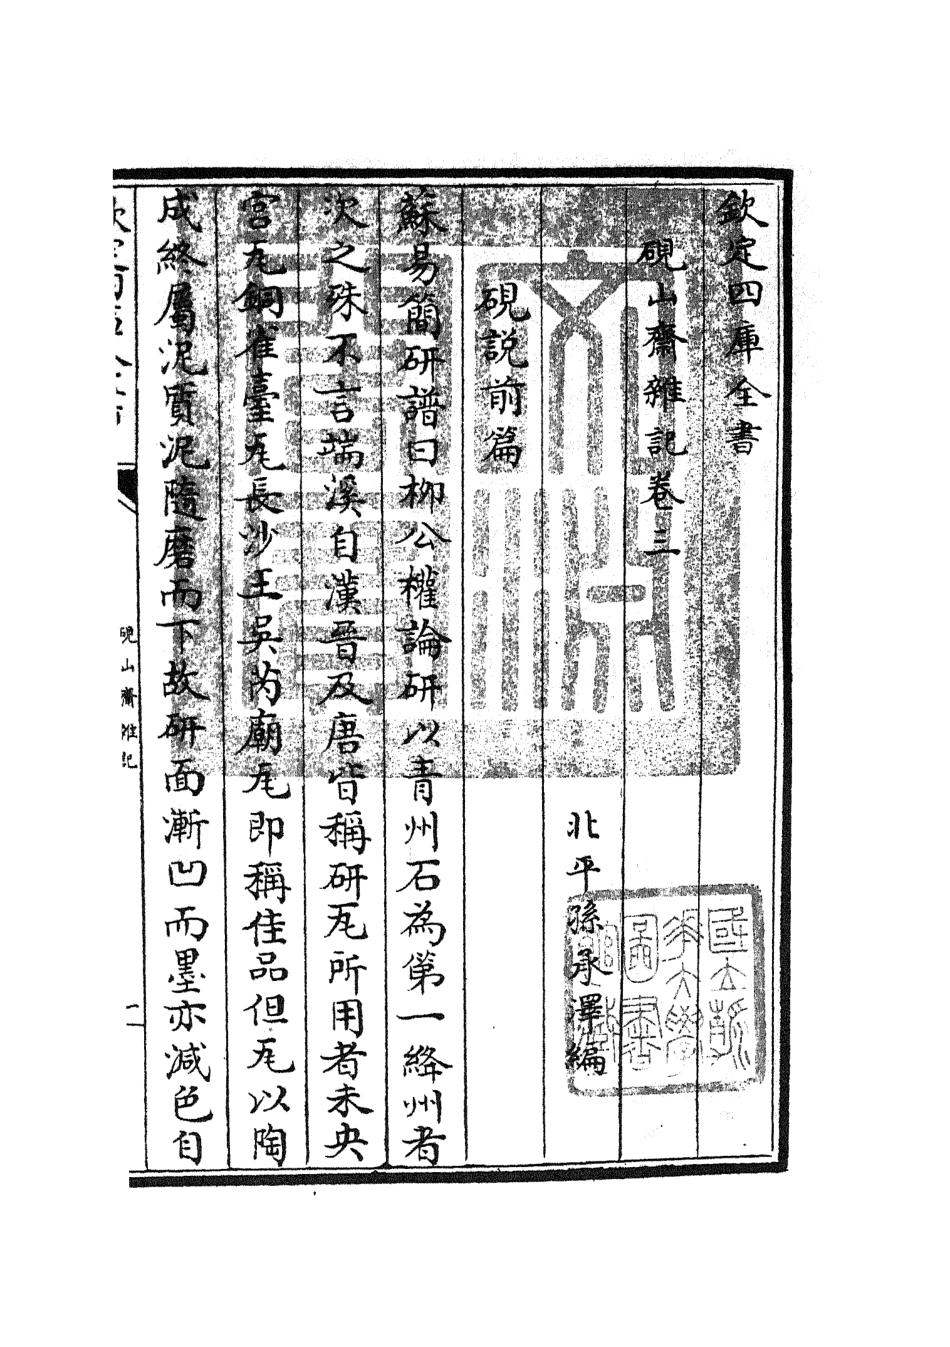 欽定四庫全書
硯山齋雜記卷三
北平孫承澤編
硯說前篇
蘇易簡研譜曰柳公權論研以青州石為第一絳州者
次之殊不言端溪自漢晉及唐皆稱研瓦所用者未央
宮瓦銅雀臺瓦長沙王吳芮廟瓦即稱佳品但瓦以陶
成終屬泥質泥隨磨而下故研面漸凹而墨亦減色自
硯山齋雜記
國立清華大學圖書館藏